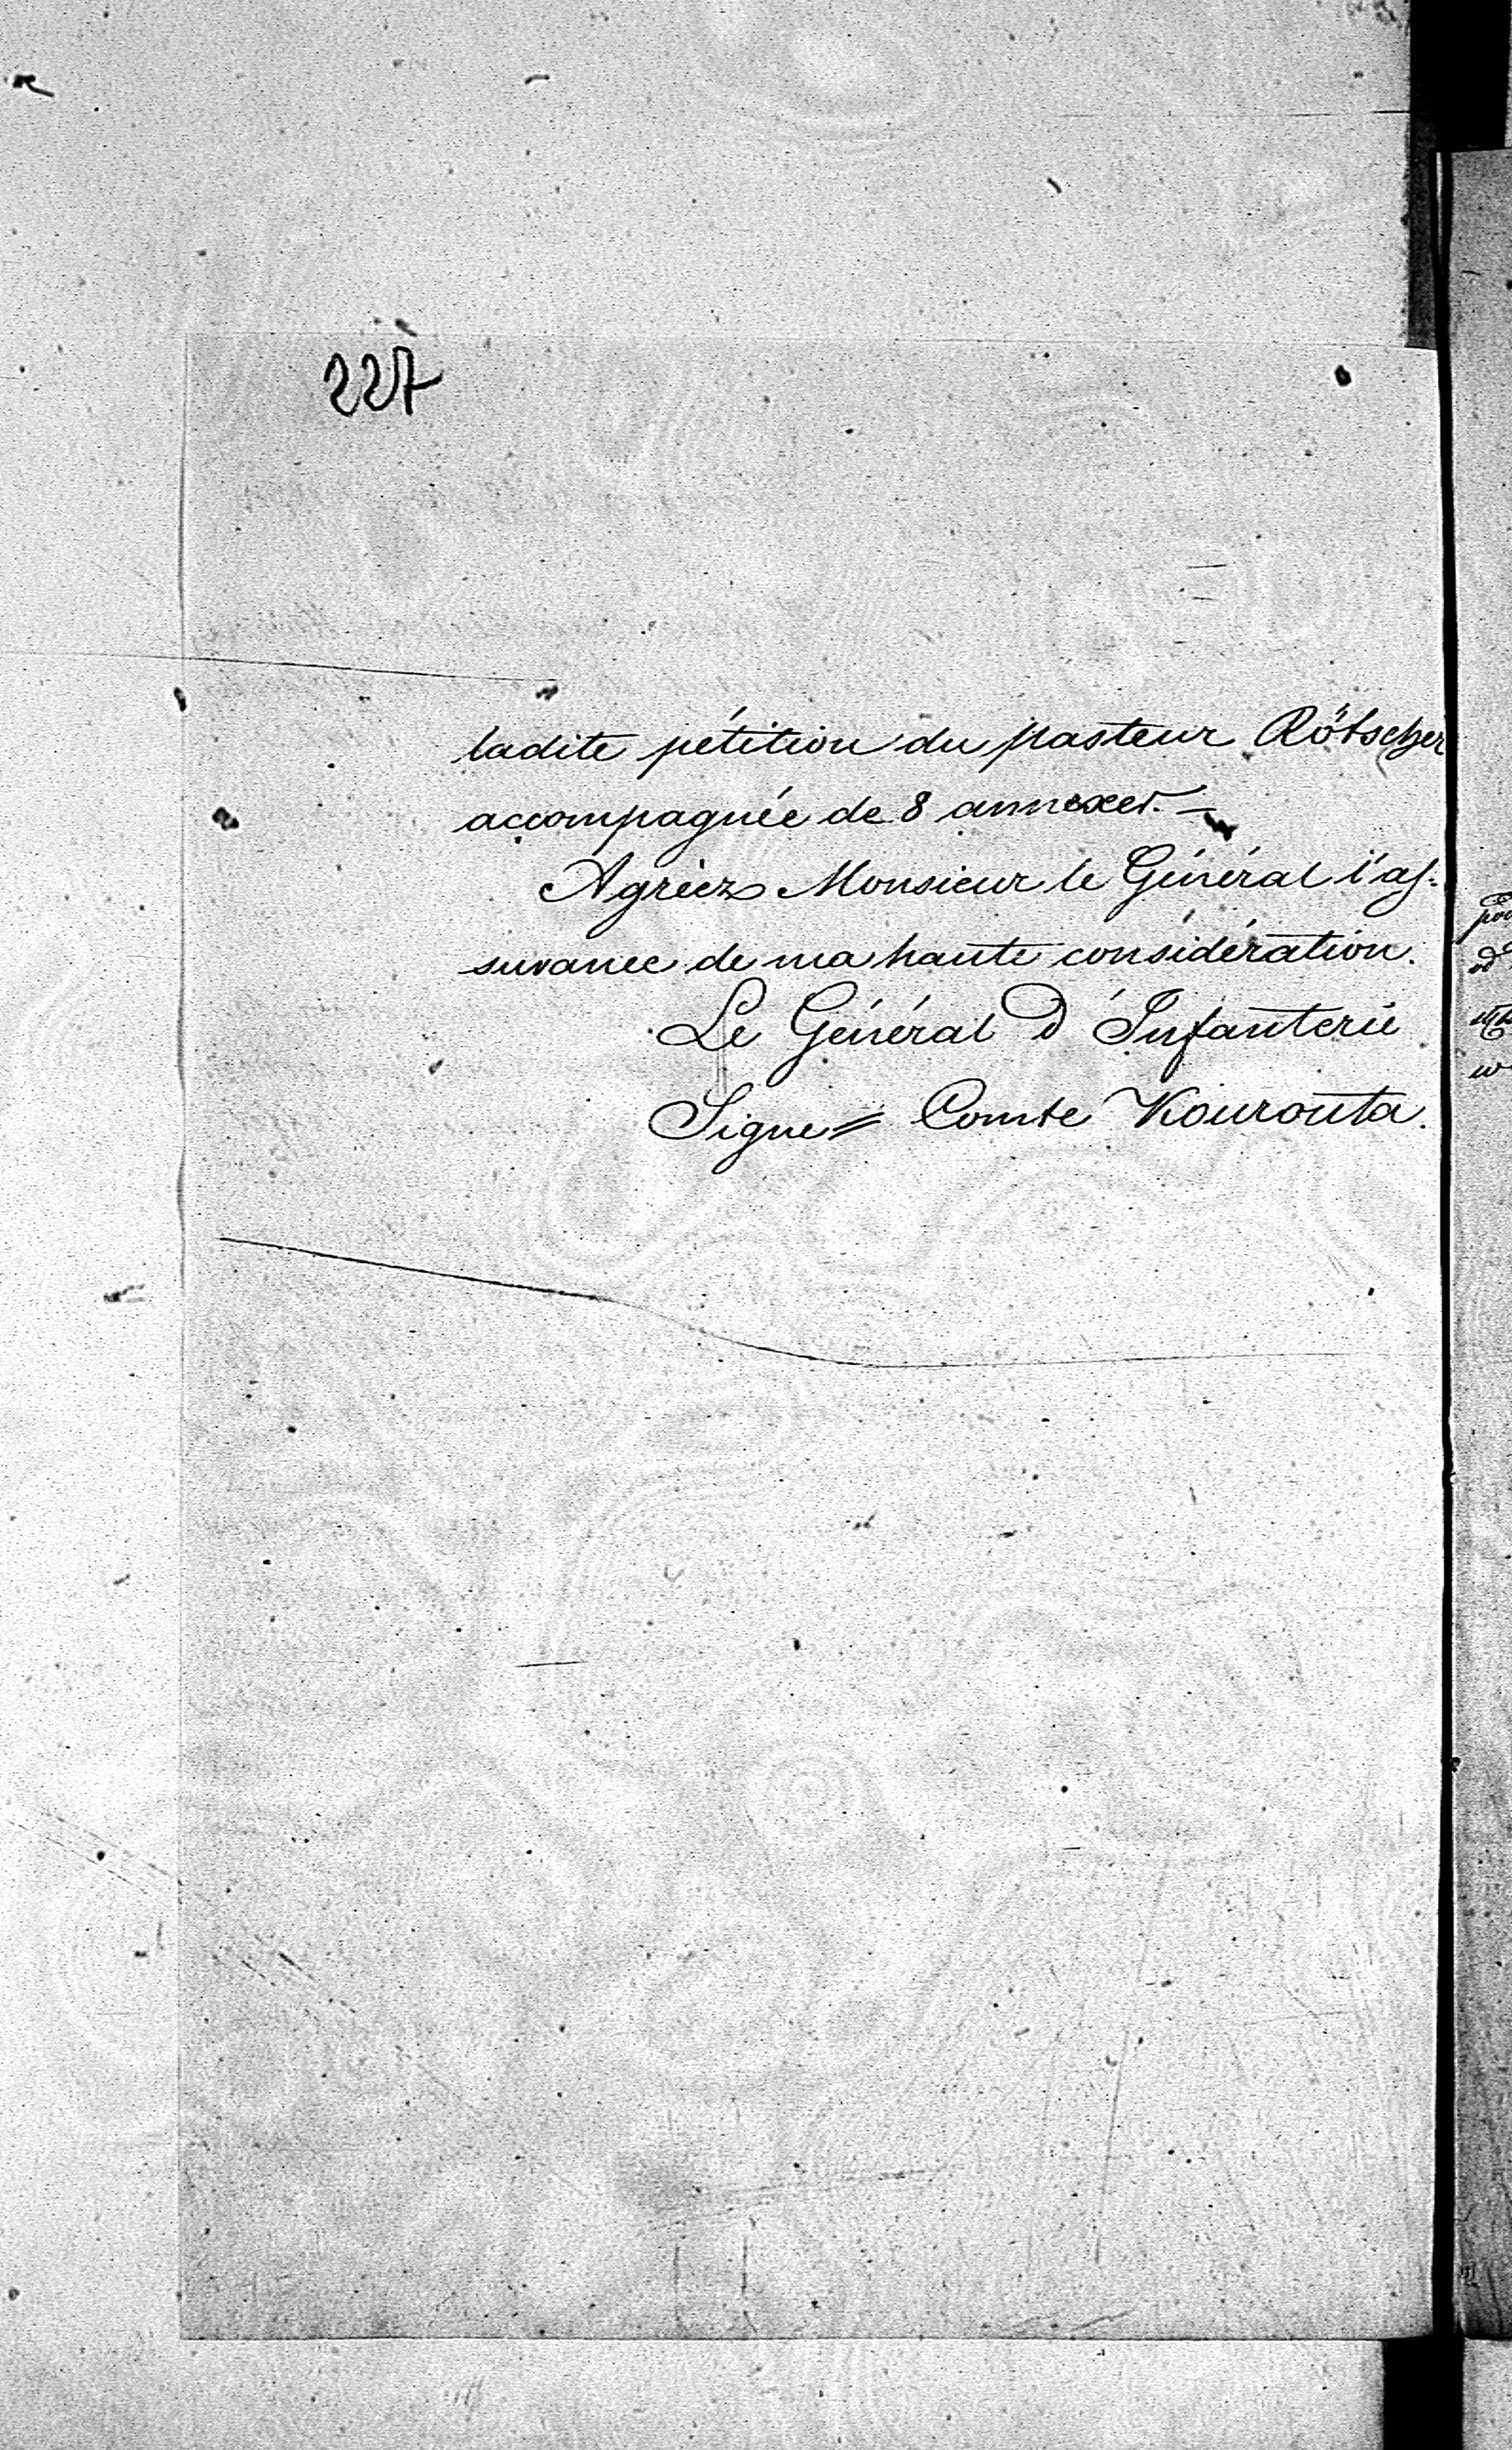 227
ladite pétition du pasteur Rötscher
accompagnée de 8 annexes. =
Agréez Monsieur le Général l'as-
surance de ma haute considération.
Le Général d'Infanterie
Signé = Comte Kourouta.